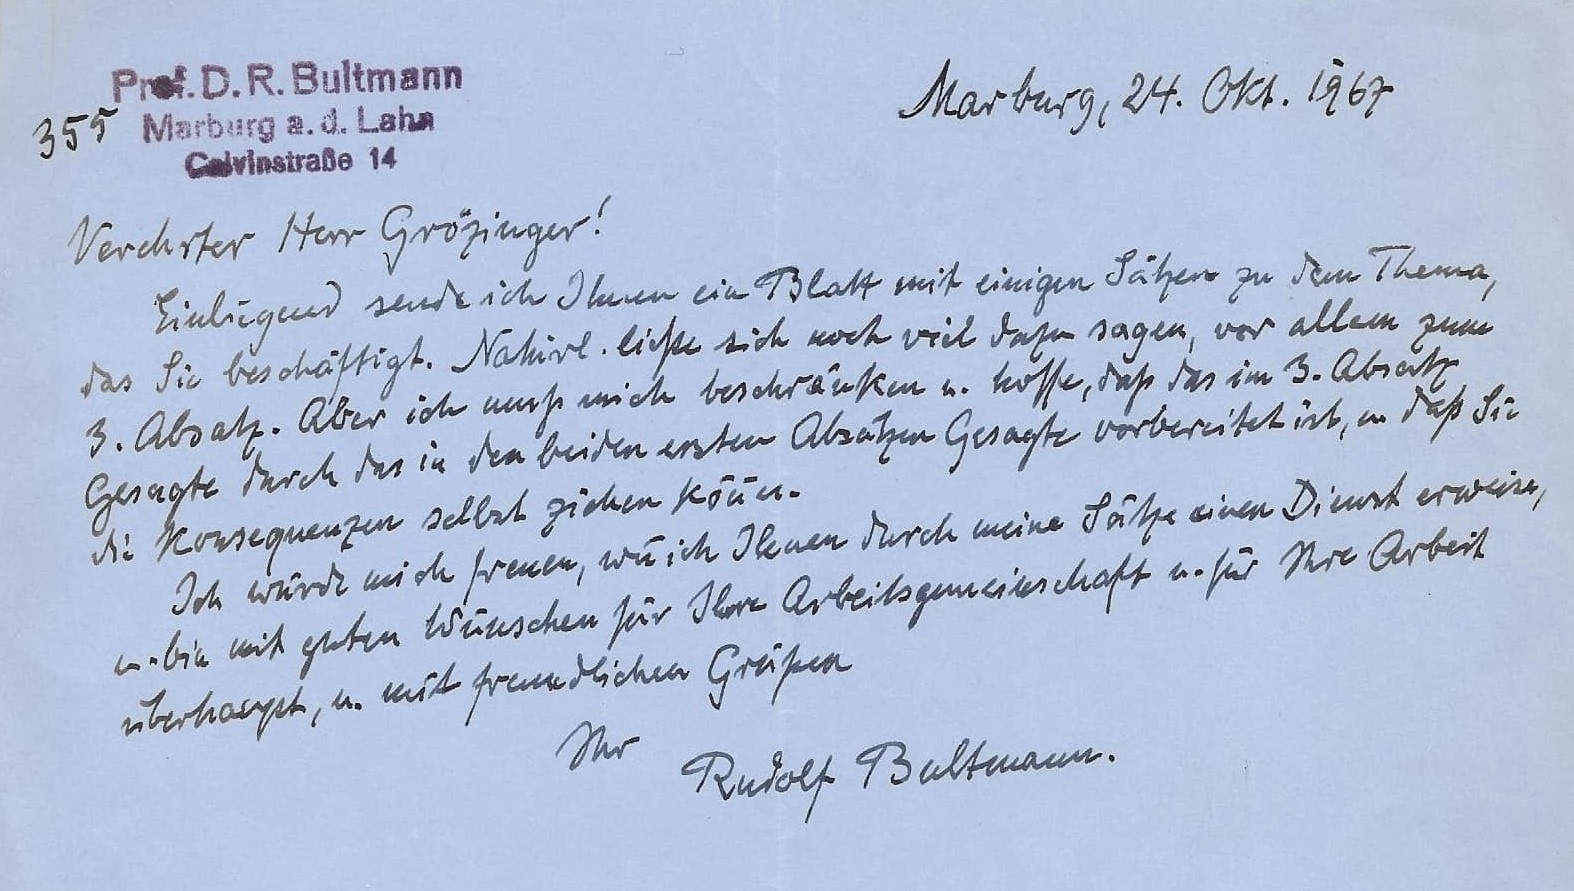 Prof. D. R. Bultmann
Marburg a. d. Lahn
Calvinstraße 14
355
Marburg, 24. Okt. 1967
Verehrter Herr Grözinger!
Einliegend sende ich Ihnen ein Blatt mit einigen Sätzen zu dem Thema,
das Sie beschäftigt. Natürl. ließe sich noch viel dazu sagen, vor allem zum
3. Absatz. Aber ich muß mich beschränken u. hoffe, daß das im 3. Absatz
Gesagte durch das in den beiden ersten Absätzen Gesagte vorbereitet ist, u. daß Sie
die Konsequenzen selbst ziehen könn̄.
Ich würde mich freuen, wen̄ ich Ihnen durch meine Sätze einen Dienst erweise,
u. bin mit guten Wünschen für Ihre Arbeitsgemeinschaft u. für Ihre Arbeit
überhaupt, u. mit freundlichen Grüßen
Ihr
Rudolf Bultmann.